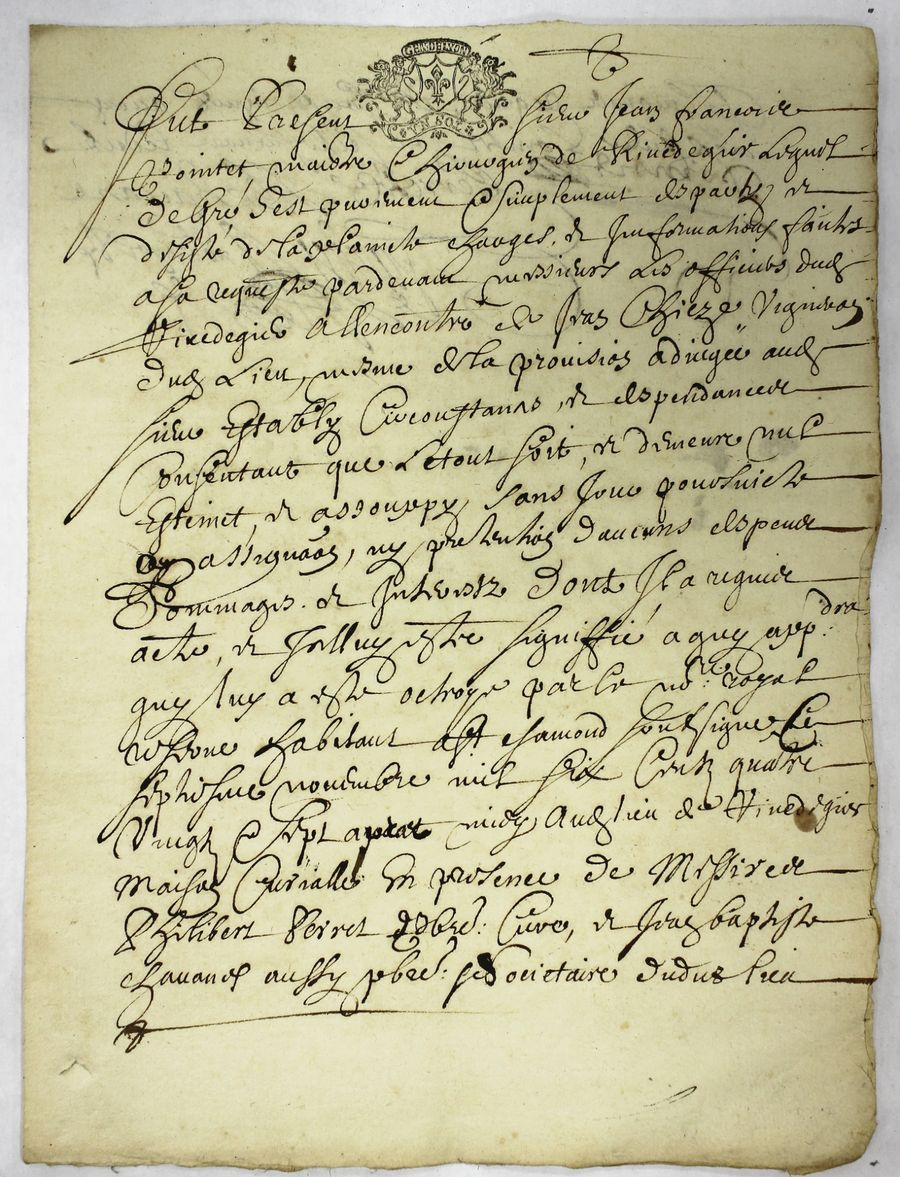 GEN DE LYON
UN SOL
Fut Present sieur Jean francois
Pointet, maistre Chirurgien de Rivedegier Lequel
de Gré sest purement & simplement despartyt et
desisté de la plainte charges, et Informations faites
a sa requeste pardevant messieurs Les officiers dud
Rivedegier allencontre de Jean Chieze Vigneron
dud Lieu, mesme de la provision adiugée aud
sieur Establyt Circonstances, et despendances
Consentant que Le tout soit, et demeure nul
Esteinct, et assouppy, sans Jouc poursuicte
ny assignaon, ny pretention daucuns despens
Dommages et Interestz dont Il a requis
acte, et Icelluy estre signiffié a quy app:dra
quy luy a este octroye par le no:re royal
reserve habitant a St chamond soubsigné, Ce
septiesme novembre mil six Centz quatre
Vingtz & sept apres midy Audlieu de Rivedegier
Maison Curialle En presence de Messires
Philibert Perret pbre: Curé, et Jean baptiste
chavanes aussy pbre: sosietaire dudit lieu